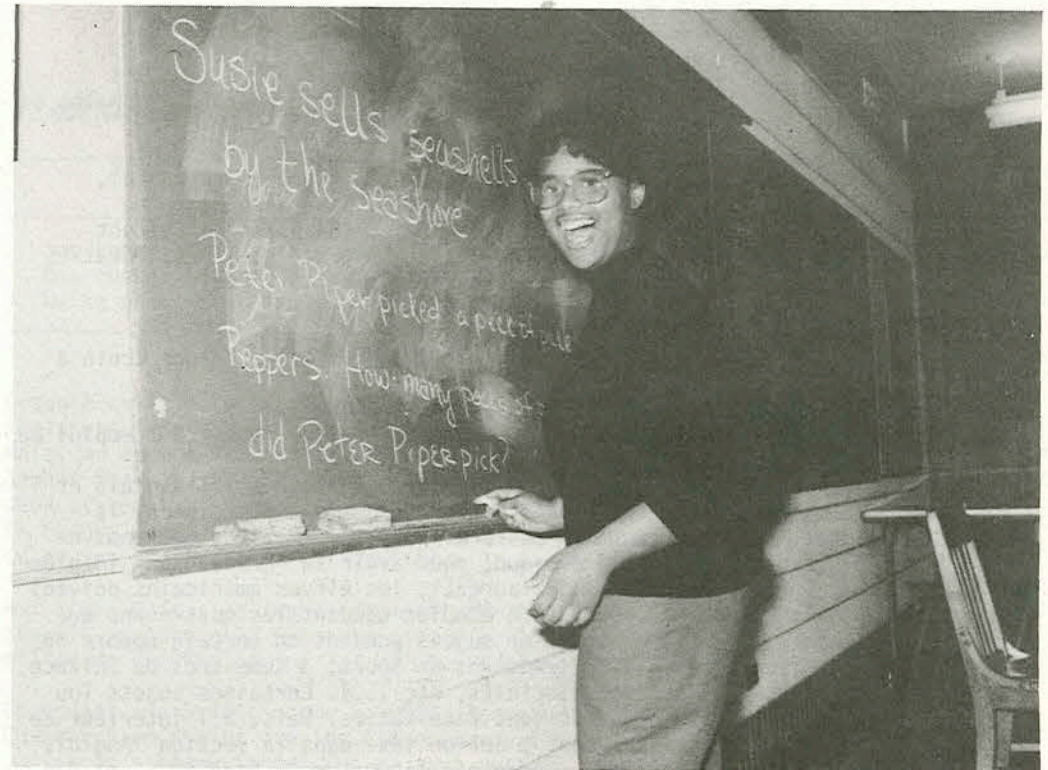 Susie sells seashells
by the seashore
Peter Piper picked a peck of
Peppers. How many
did PETER PIPER pick?